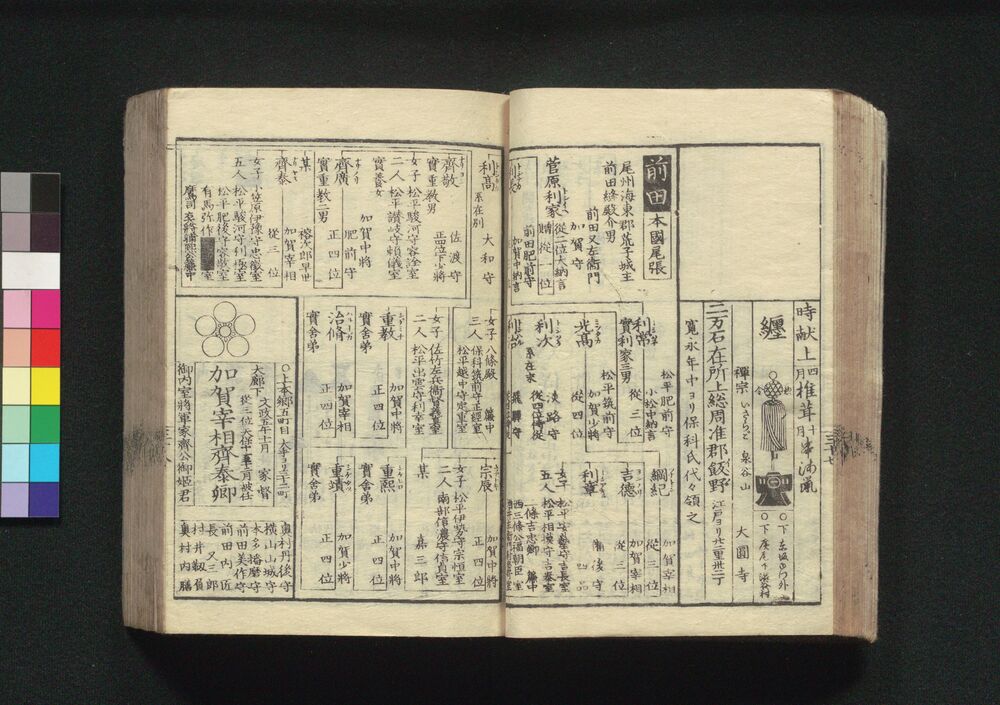 時献上
四月
椎茸
十月
串海鼠
纏
〇下
〇下
禪宗
いさらご
泉谷山
大圓寺
二万石在所上総周准郡飯野
寛永年中ヨリ保科氏代々領之
前田
本國尾張
尾州海東郡荒子城主
前田縫殿介男
前田又左衛門
加賀守
菅原利家
從二位大納言
贈從一位
前田肥前守
加賀中納言
松平肥前守
利常
小松中納言
實利家三男
從三位
松平筑前守
光高
加賀少將
從四位
利次
淡路守
系在末
從四位侍從
飛騨守
加賀宰相
綱紀
從三位
加賀宰相
吉德
從三位
利章
備後守
女子
五人
松平安藝守吉長室
松平相模守吉泰室
二條吉忠卿
簾中
西三條公福朝臣室
利高
系在別
大和守
齊敬
佐渡守
實重教男
正四位下少將
女子
二人
松平駿河守容詮室
松平讃岐守頼儀室
實養女
加賀中將
齊廣
肥前守
實重教二男
正四位
某
裕次郎早世
齊泰
加賀宰相
從三位
女子
五人
小笠原伊豫守忠徴室
松平駿河守利極室
松平肥後守容敬室
有馬弥作
室
鷹司
簾中
女子
三人
八條殿
簾中
保科筑前守正經室
松平越中守定重室
女子
二人
佐竹左兵衛督義峯室
松平出雲守利幸室
重教
加賀中將
實舎弟
正四位
治脩
加賀宰相
實舎弟
正四位
宗辰
加賀中將
正四位
女子
二人
松平伊勢守宗恒室
南部信濃守信真室
某
嘉三郎
重熙
加賀中將
實舎弟
正四位
重靖
加賀少將
實舎弟
正四位
〇上本郷五町目
大手ヨリ二十二町
大廊下
文政五年十月
家督
從三位
加賀宰相齊泰卿
御内室將軍家齊公御姫君
奥村丹後守
横山山城守
本多播磨守
前田美作守
前田内匠
長又三郎
村井靱負
奥村内膳